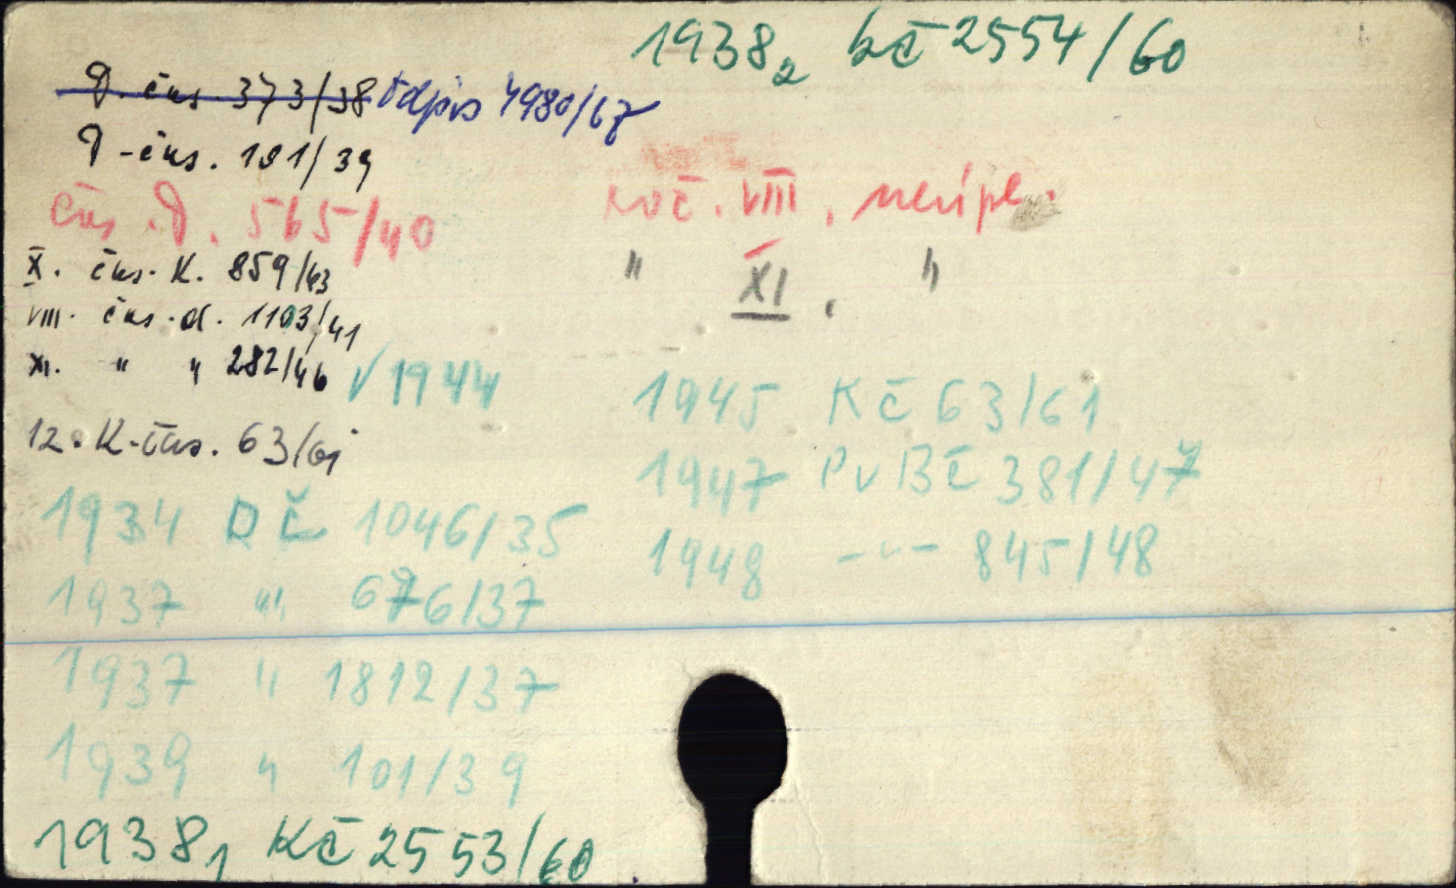 1938₂ kč 2554/60
D. čas 373/38 Odpis 4980/67
D-čas. 101/39
čas. D. 565/40 roč. VIII, neúpl.
X. čas. K. 859/43 " XI, "
VIII. čas. d. 1103/41
XI. " " 282/46 √ 1944
1945 Kč 63/61
12. K-čas. 63/61
1947 PvBč 381/47
1934 DČ 1046/35
1948 -"- 845/48
1937 " 676/37
1937 " 1812/37
1939 " 101/39
1938₁ Kč 2553/60